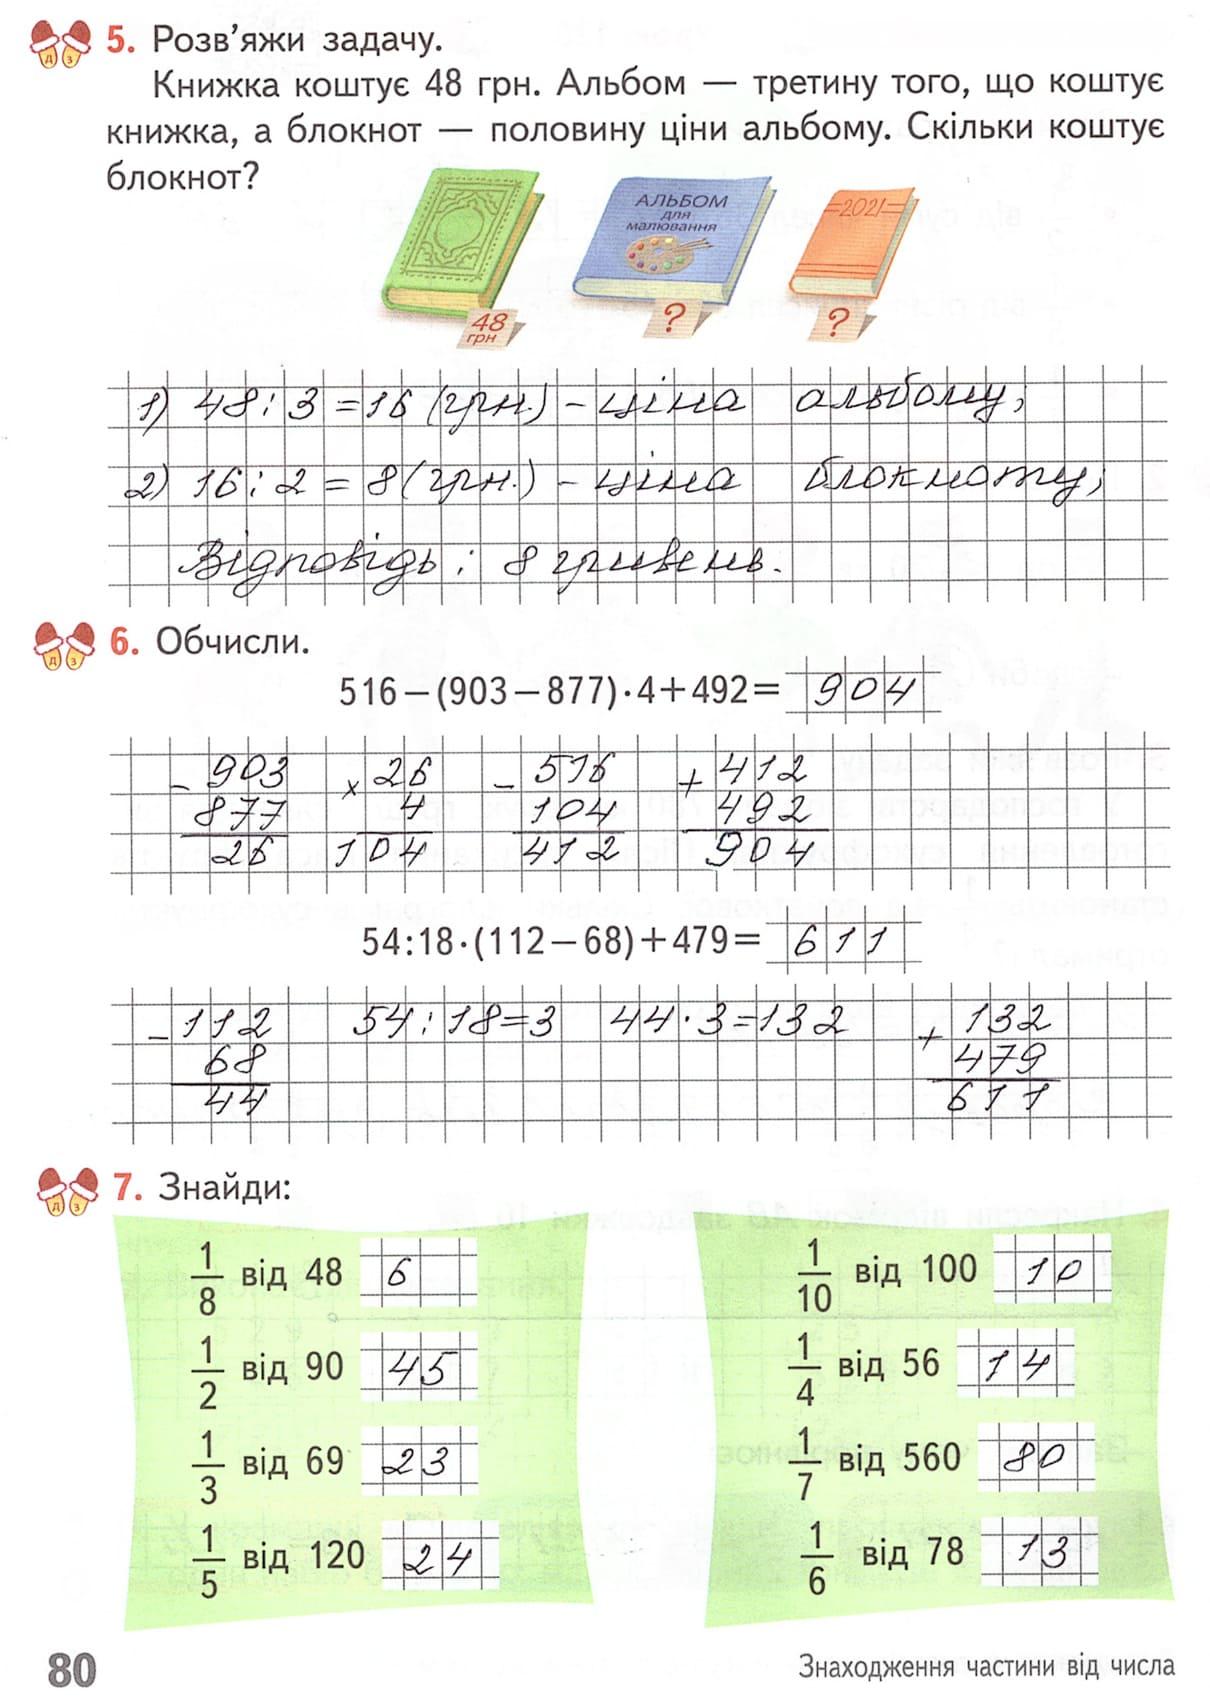 5. Розв’яжи задачу.
Книжка коштує 48 грн. Альбом — третину того, що коштує
книжка, а блокнот — половину ціни альбому. Скільки коштує
блокнот?
АЛЬБОМ
ДЛЯ
МАЛЮВАННЯ
2021
48
грн
?
?
1) 48 : 3 = 16 (грн.) – ціна альбому;
2) 16 : 2 = 8 (грн.) – ціна блокноту;
Відповідь : 8 гривень.
д з
6. Обчисли.
516 – (903 – 877) · 4 + 492 = 904
– 903 × 26 – 516 + 412
877 4 104 492
26 104 412 904
54 : 18 · (112 – 68) + 479 = 611
– 112 54 : 18 = 3 44 · 3 = 132 + 132
68 479
44 611
д з
7. Знайди:
1/8 від 48 6
1/2 від 90 45
1/3 від 69 23
1/5 від 120 24
1/10 від 100 10
1/4 від 56 14
1/7 від 560 80
1/6 від 78 13
80
Знаходження частини від числа